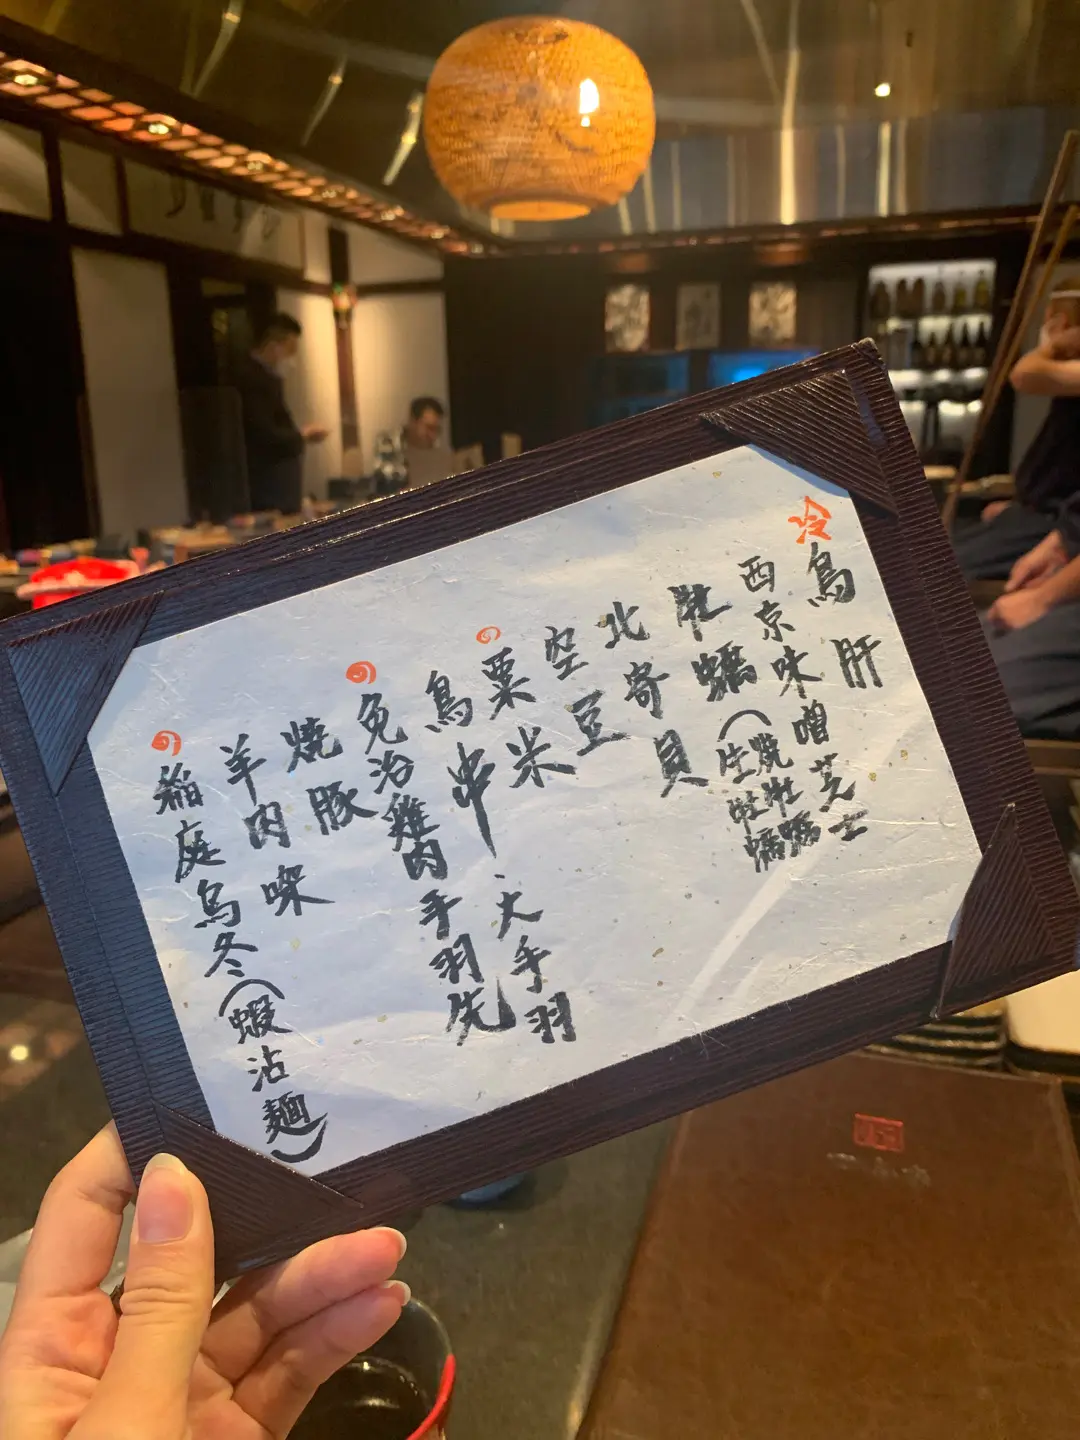 冷
鳥肝
西京味噌芝士
牡蠣(燒牡蠣
生牡蠣
北寄貝
空豆
の
粟米
鳥串、大手羽
の
免治雞肉手羽先
燒豚
羊肉架
の
稲庭烏冬(蝦沾麵)